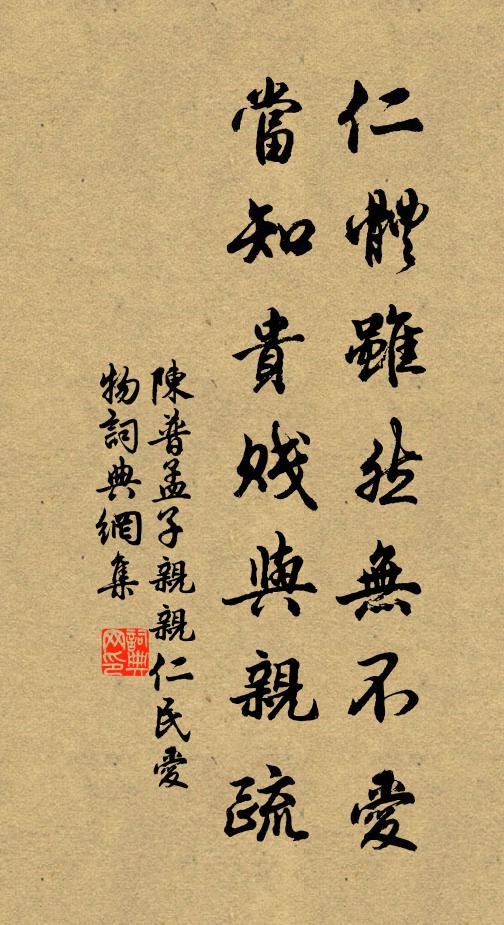 仁體雖然無不愛
當知貴賤與親疏
陳普孟子親親仁民愛
物詞典網集
詞典网印